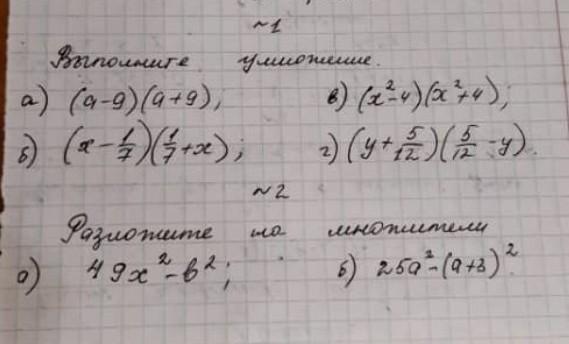 ~1
Выполните умножение.
а) (а-9)(а+9); в) (x²-4)(x²+4);
б) (x-1/7)(1/7+x); г) (y+5/12)(5/12-y).
~2
Разложите на множители
а) 49x²-b²; б) 25a²-(a+3)².